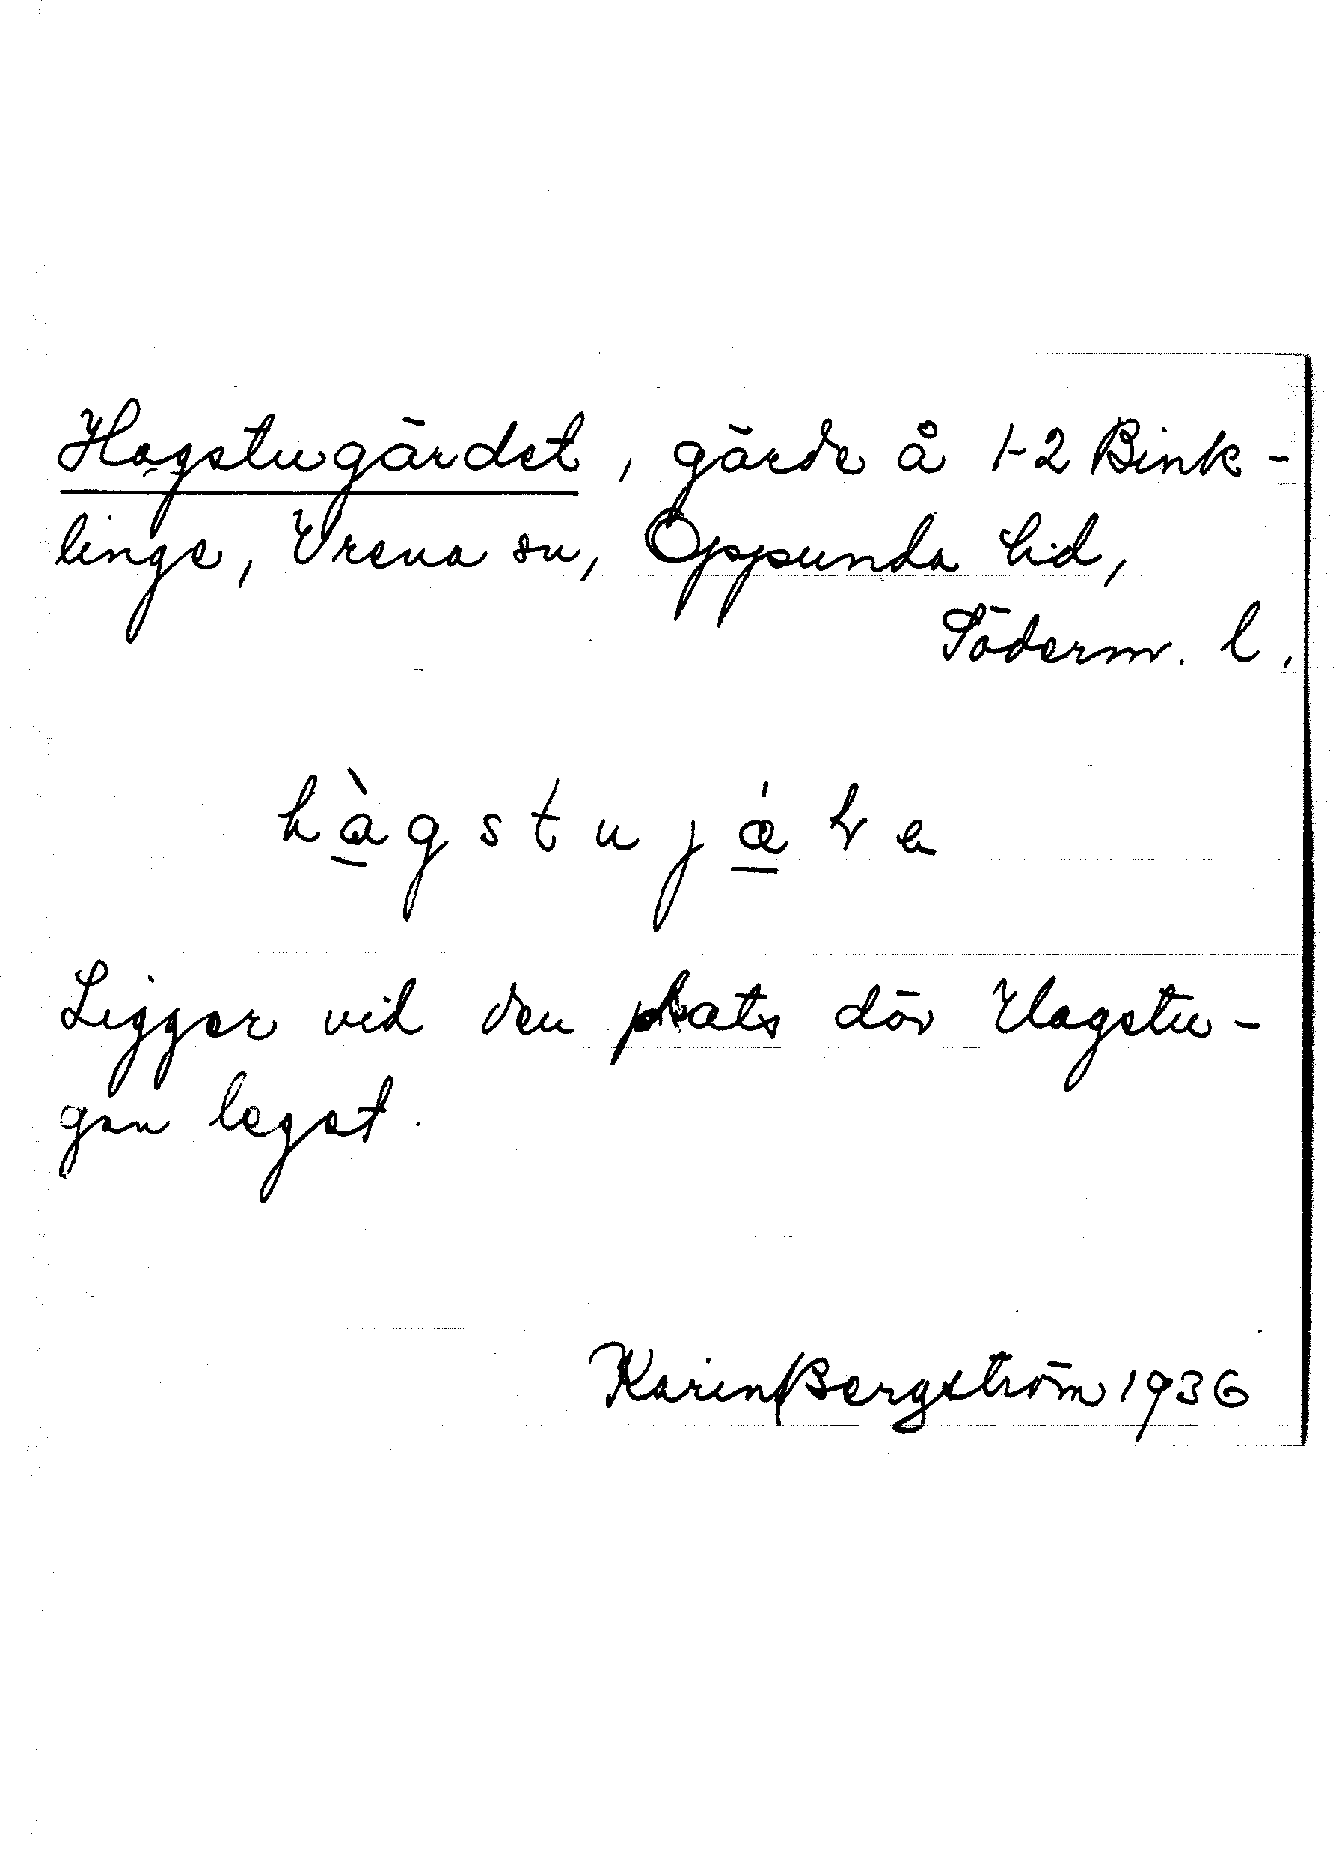 Hagstugärdet, gärde å 1-2 Bink-
linge, Vrena sn, Oppunda hd,
Söderm. l.
hàgstujǽ
Ligger vid den plats där Hagstu-
gan legat.
Karin Bergström 1936